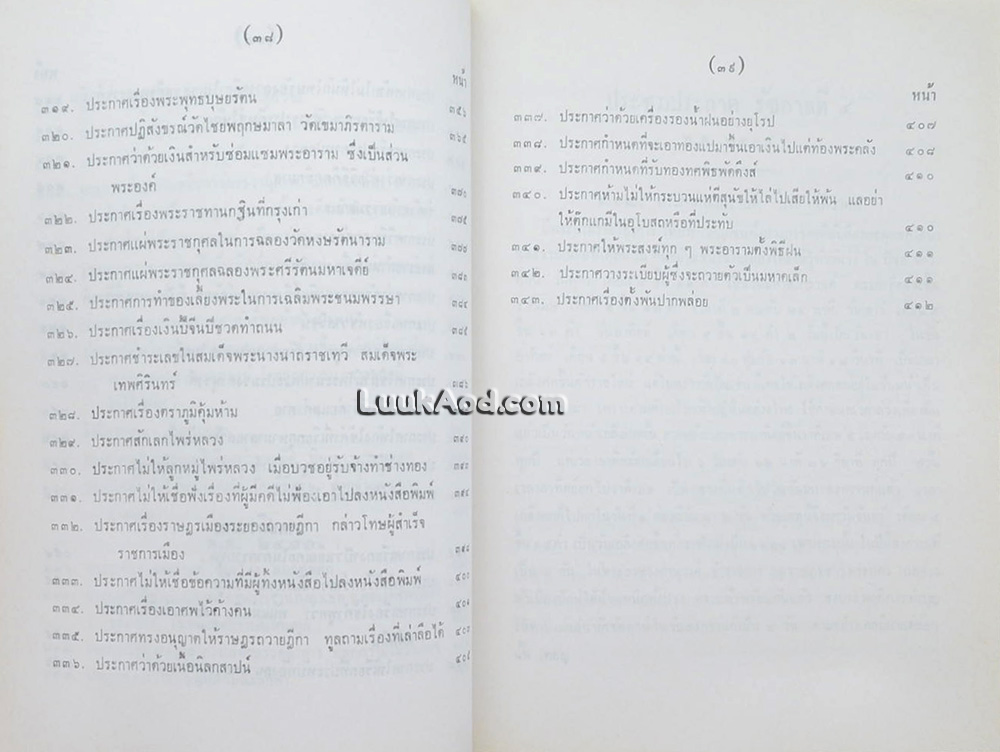 (๓๘)
หน้า
๓๑๙. ประกาศเรื่องพระพุทธบุษยรัตน ๓๕๖
๓๒๐. ประกาศปฏิสังขรณ์วัดไชยพฤกษมาลา วัดเขมาภิรตาราม ๓๖๕
๓๒๑. ประกาศว่าด้วยเงินสำหรับซ่อมแซมพระอาราม ซึ่งเป็นส่วน
พระองค์ ๓๘๐
๓๒๒. ประกาศเรื่องพระราชทานกฐินที่กรุงเก่า ๓๘๕
๓๒๓. ประกาศแผ่พระราชกุศลในการฉลองวัดหงษรัตนาราม
๓๒๔. ประกาศแผ่พระราชกุศลฉลองพระศรีรัตนมหาเจดีย์
๓๒๕. ประกาศการทำของเลี้ยงพระในการเฉลิมพระชนมพรรษา
๓๒๖. ประกาศเรื่องเงินปี้จีนปีชวดทำถนน
๓๒๗. ประกาศชำระเลขในสมเด็จพระนางนาถราชเทวี สมเด็จพระ
เทพศิรินทร์
๓๒๘. ประกาศเรื่องตราภูมิคุ้มห้าม
๓๒๙. ประกาศสักเลกไพร่หลวง
๓๓๐. ประกาศไม่ให้ลูกหมู่ไพร่หลวง เมื่อบวชอยู่รับจ้างทำช่างทอง
๓๓๑. ประกาศไม่ให้เชื่อฟังเรื่องที่ผู้มีคดีไม่ฟ้องเอาไปลงหนังสือพิมพ์ ๓๙๔
๓๓๒. ประกาศเรื่องราษฎรเมืองระยองถวายฎีกา กล่าวโทษผู้สำเร็จ
ราชการเมือง ๓๙๘
๓๓๓. ประกาศไม่ให้เชื่อข้อความที่มีผู้ทิ้งหนังสือไปลงหนังสือพิมพ์
๓๓๔. ประกาศเรื่องเอาศพไว้ค้างคืน
๓๓๕. ประกาศทรงอนุญาตให้ราษฎรถวายฎีกา ทูลถามเรื่องที่เล่าลือได้
๓๓๖. ประกาศว่าด้วยเนื้อนิลกสาปน์
(๓๙)
หน้า
๓๓๗. ประกาศว่าด้วยเครื่องรองน้ำฝนอย่างยุโรป ๔๐๗
๓๓๘. ประกาศกำหนดที่จะเอาทองแปมาขึ้นเอาเงินไปแต่ท้องพระคลัง ๔๐๘
๓๓๙. ประกาศกำหนดที่รับทองทศพิธพัดดึงส์ ๔๑๐
๓๔๐. ประกาศห้ามไม่ให้กระบวนแห่ตีสุนัขให้ไล่ไปเสียให้พ้น แลอย่า
ให้ตุ๊กแกมีในอุโบสถหรือที่ประทับ ๔๑๐
๓๔๑. ประกาศให้พระสงฆ์ทุก ๆ พระอารามตั้งพิธีฝน ๔๑๑
๓๔๒. ประกาศวางระเบียบผู้ซึ่งจะถวายตัวเป็นมหาดเล็ก ๔๑๑
๓๔๓. ประกาศเรื่องตั้งพันปากพล่อย ๔๑๒
LuukAod.com